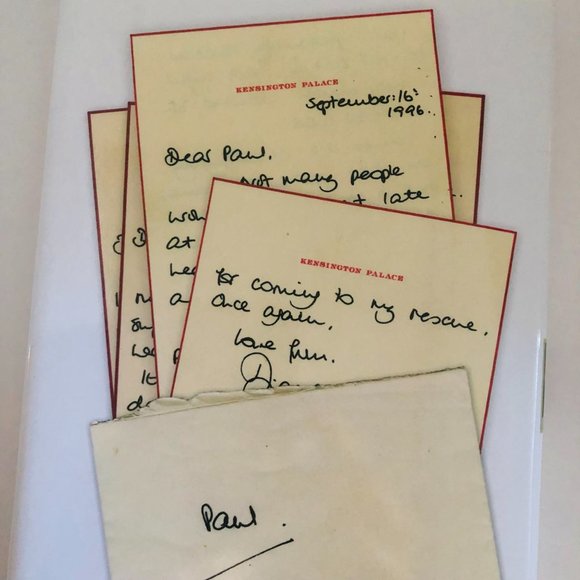 KENSINGTON PALACE
September:16:
1996.
Dear Paul,
not many people
late
at
KENSINGTON PALACE
for coming to my rescue,
once again,
love from,
Diana
Paul.